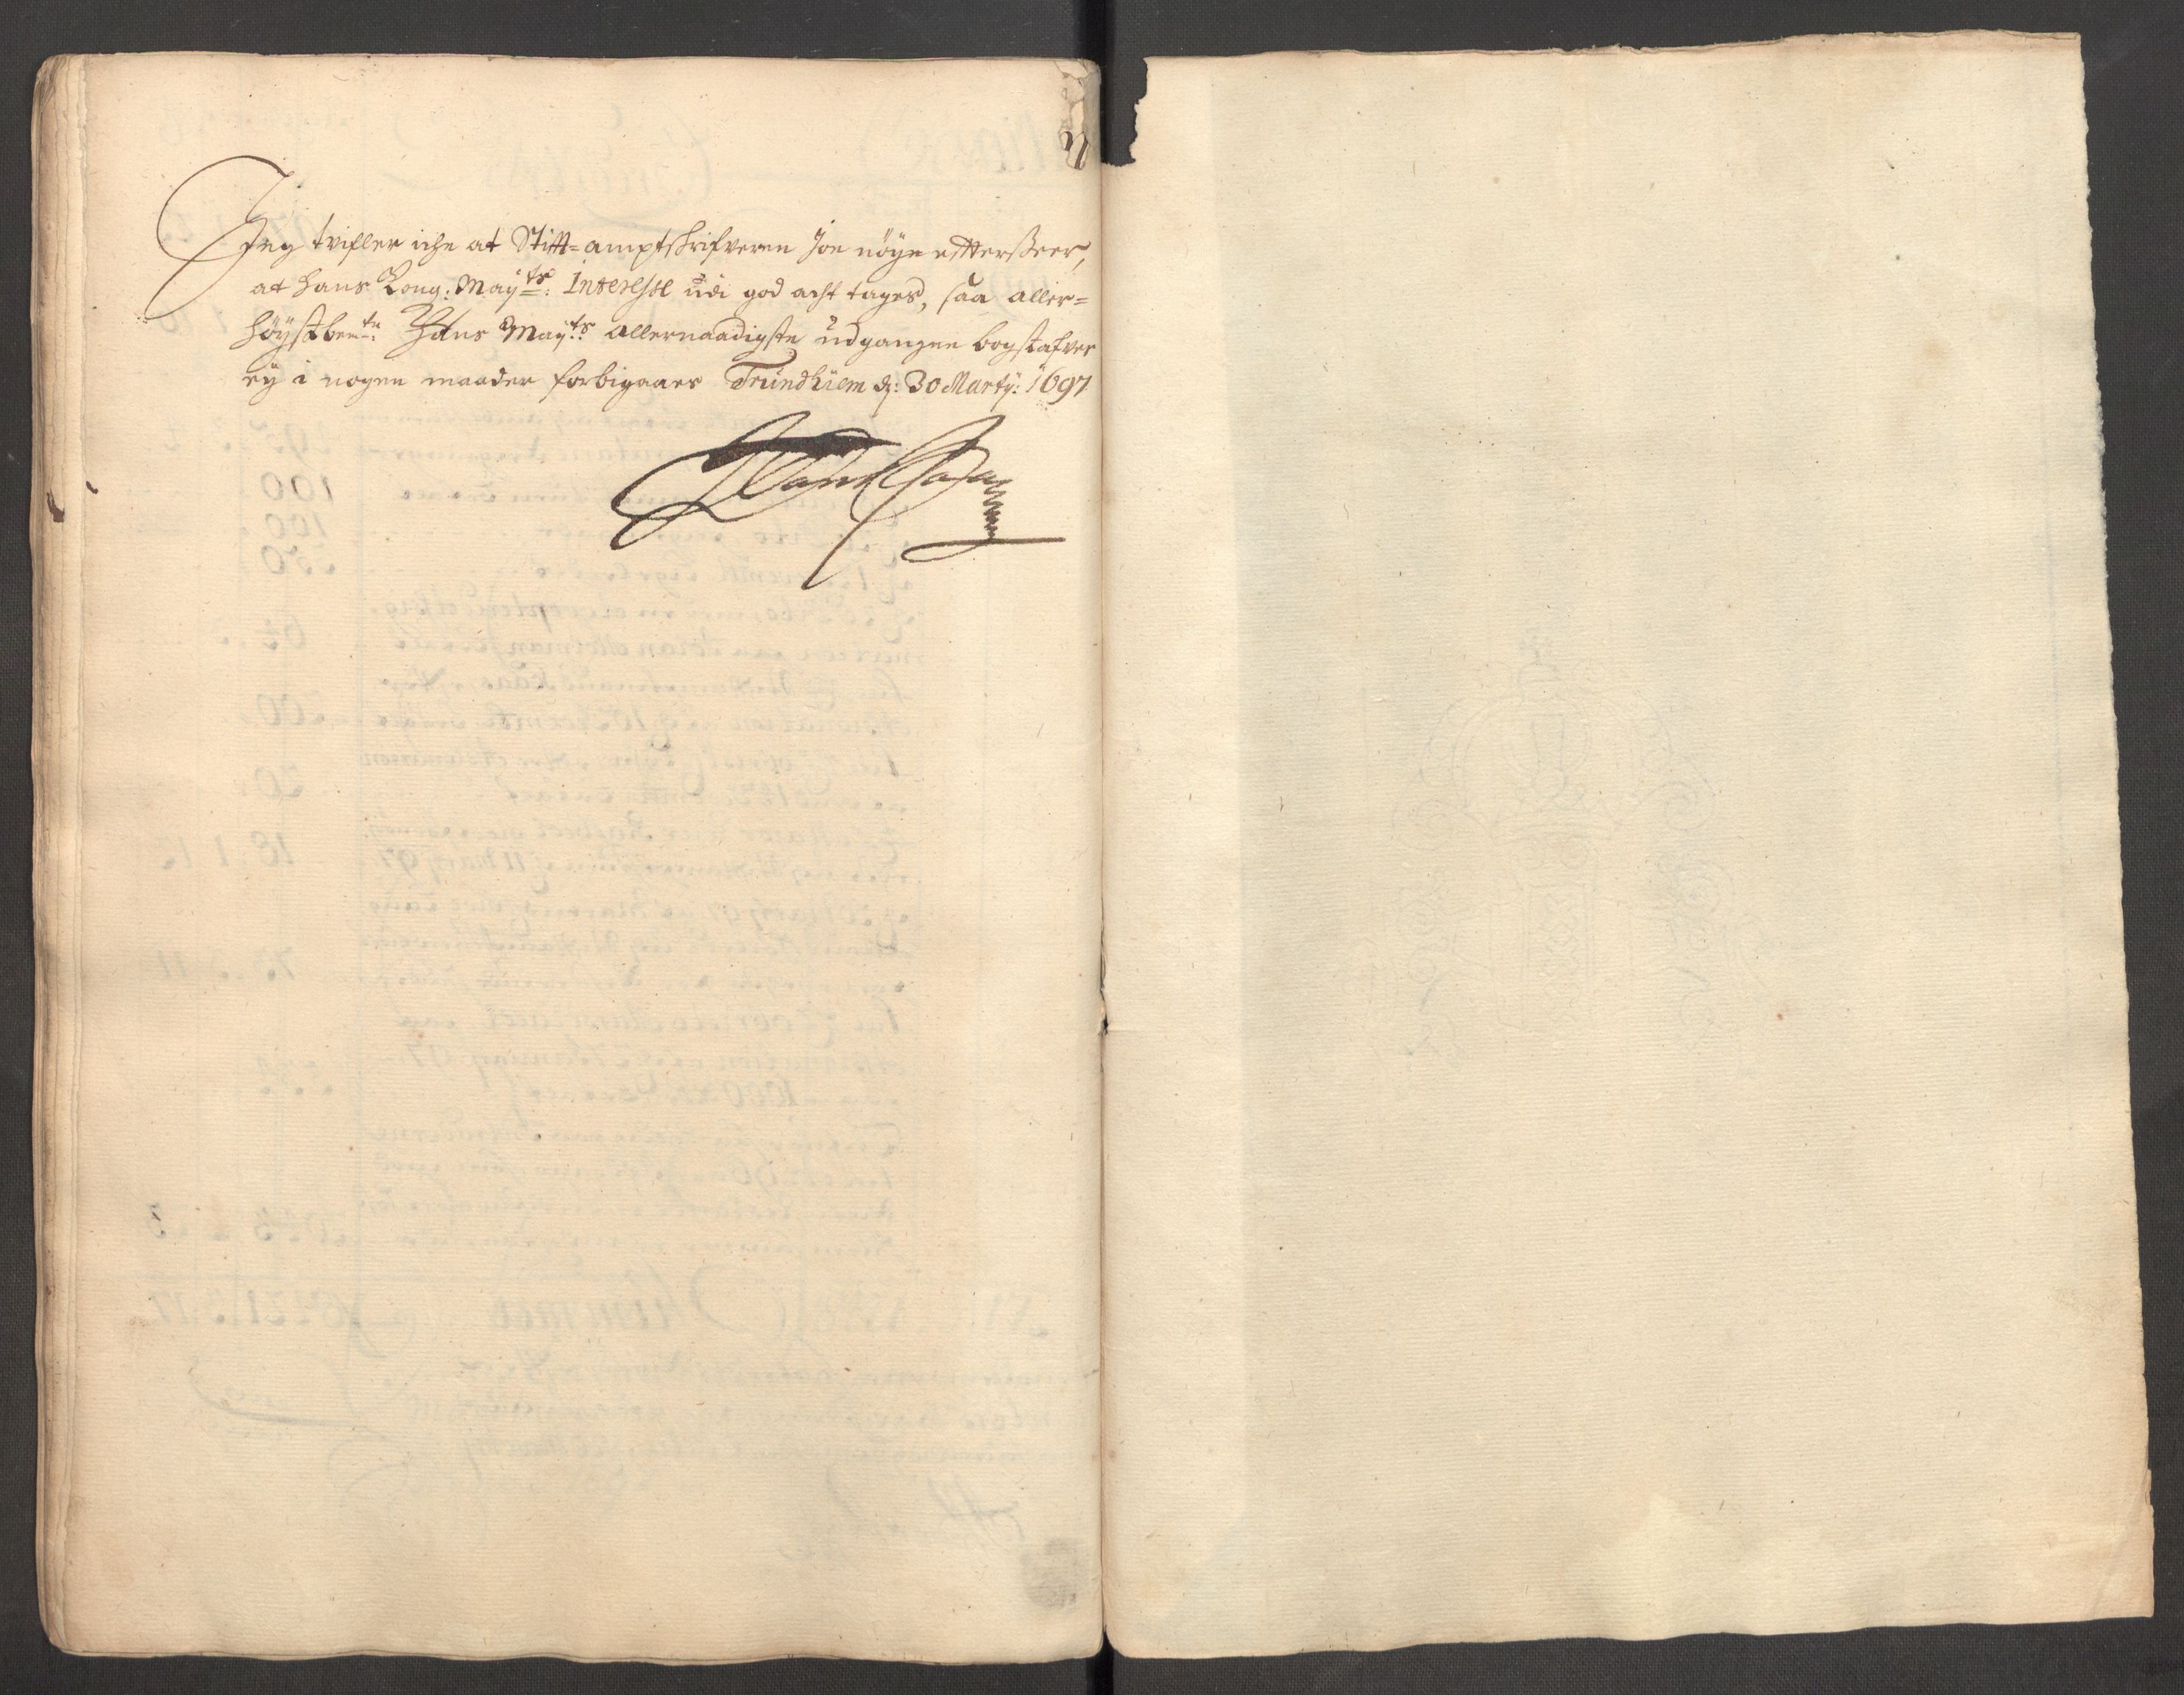 Jeg tvifler iche at Stift=amptschrifveren jo nøye efterseer,
at hans Kong: May:ts: Interesse udi god acht tages, saa aller=
høystbem:te Hans May:ts allernaadigste udgangne bogstafver
ey i nogen maader forbigaaes Trundhiem d: 30 Marty: 1697